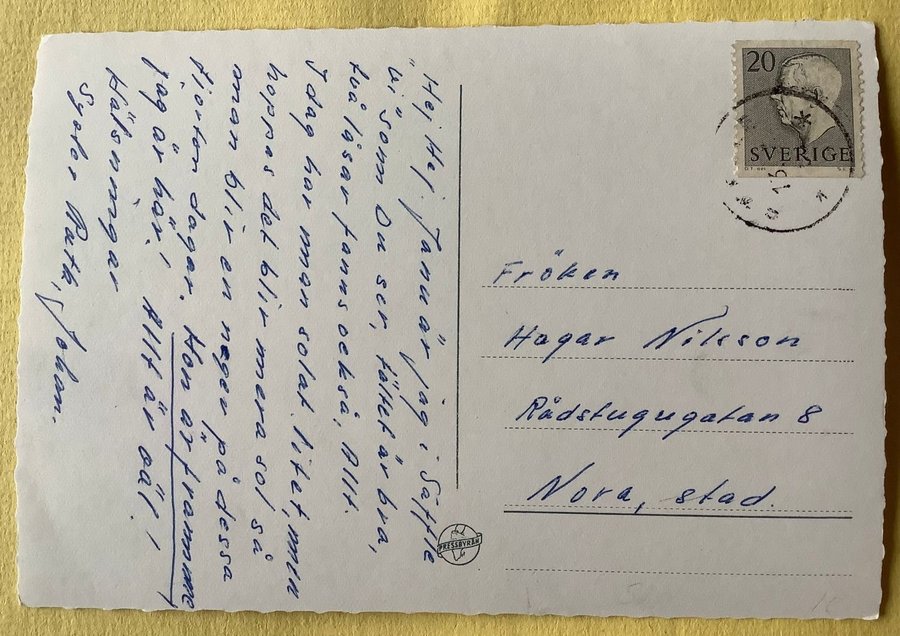 "Hej, Hej. Janu är jag i Säffle
vi som Du ser, tältet är bra,
två låsar fanns också, Allt.
Idag har man solat litet, men
hoppas det blir mera sol så
man blir en neger på dessa
fjorton dagar. Hon är framme
jag är här, Allt är väl,
Hälsningar
Syster Ruth, Johan.
20
SVERIGE
Fröken
Hagar Nilsson
Rådstugugatan 8
Nora, stad.
PRESSBYRÅN